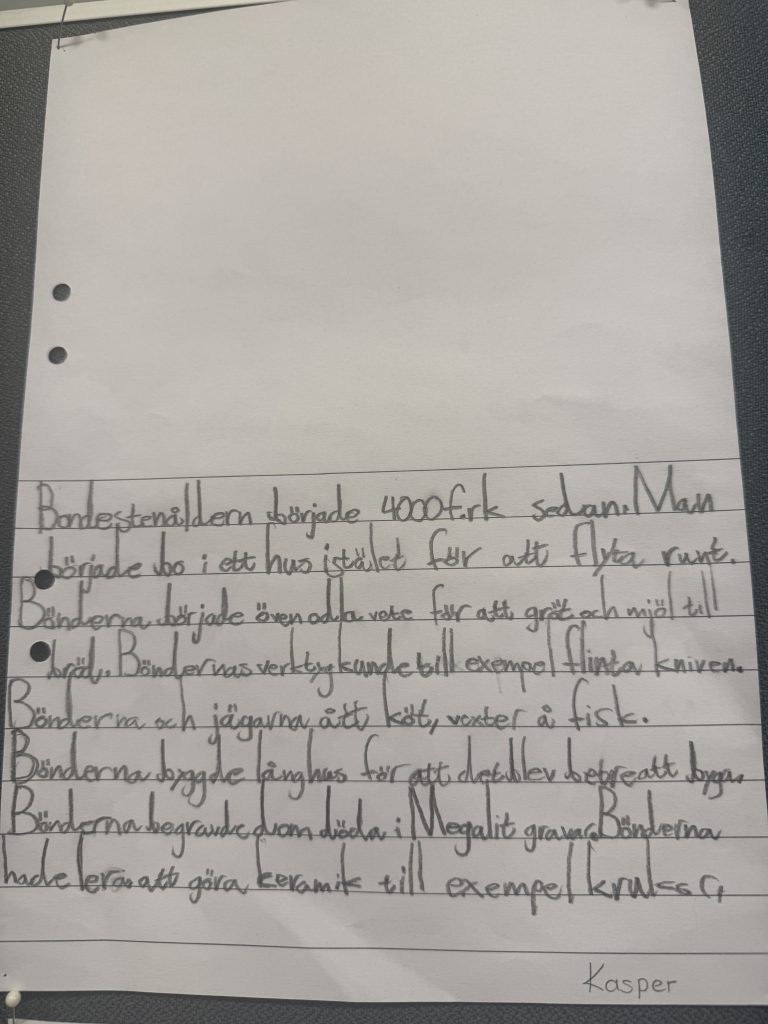 Bondestenåldern började 4000f.rk sedan. Man
började bo i ett hus istälet för att flyta runt.
Bönderna började även odla vete för att gröt och mjöl till
bröd. Böndernas verktyg kunde till exempel flinta kniven.
Bönderna och jägarna ått köt, vexter å fisk.
Bönderna byggde långhus för att det blev betre att byga.
Bönderna begravde dom döda i Megalit gravar. Bönderna
hade lera att göra keramik till exempel
Kasper